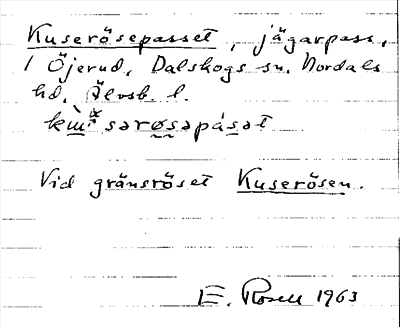 Kuserösepasset, jägarpass,
i Öjerud, Dalskogs sn. Nordals
hd. Älvsb. l.
sərøsəpásət
Vid gränsröset Kuserösen.
E. Rosell 1963